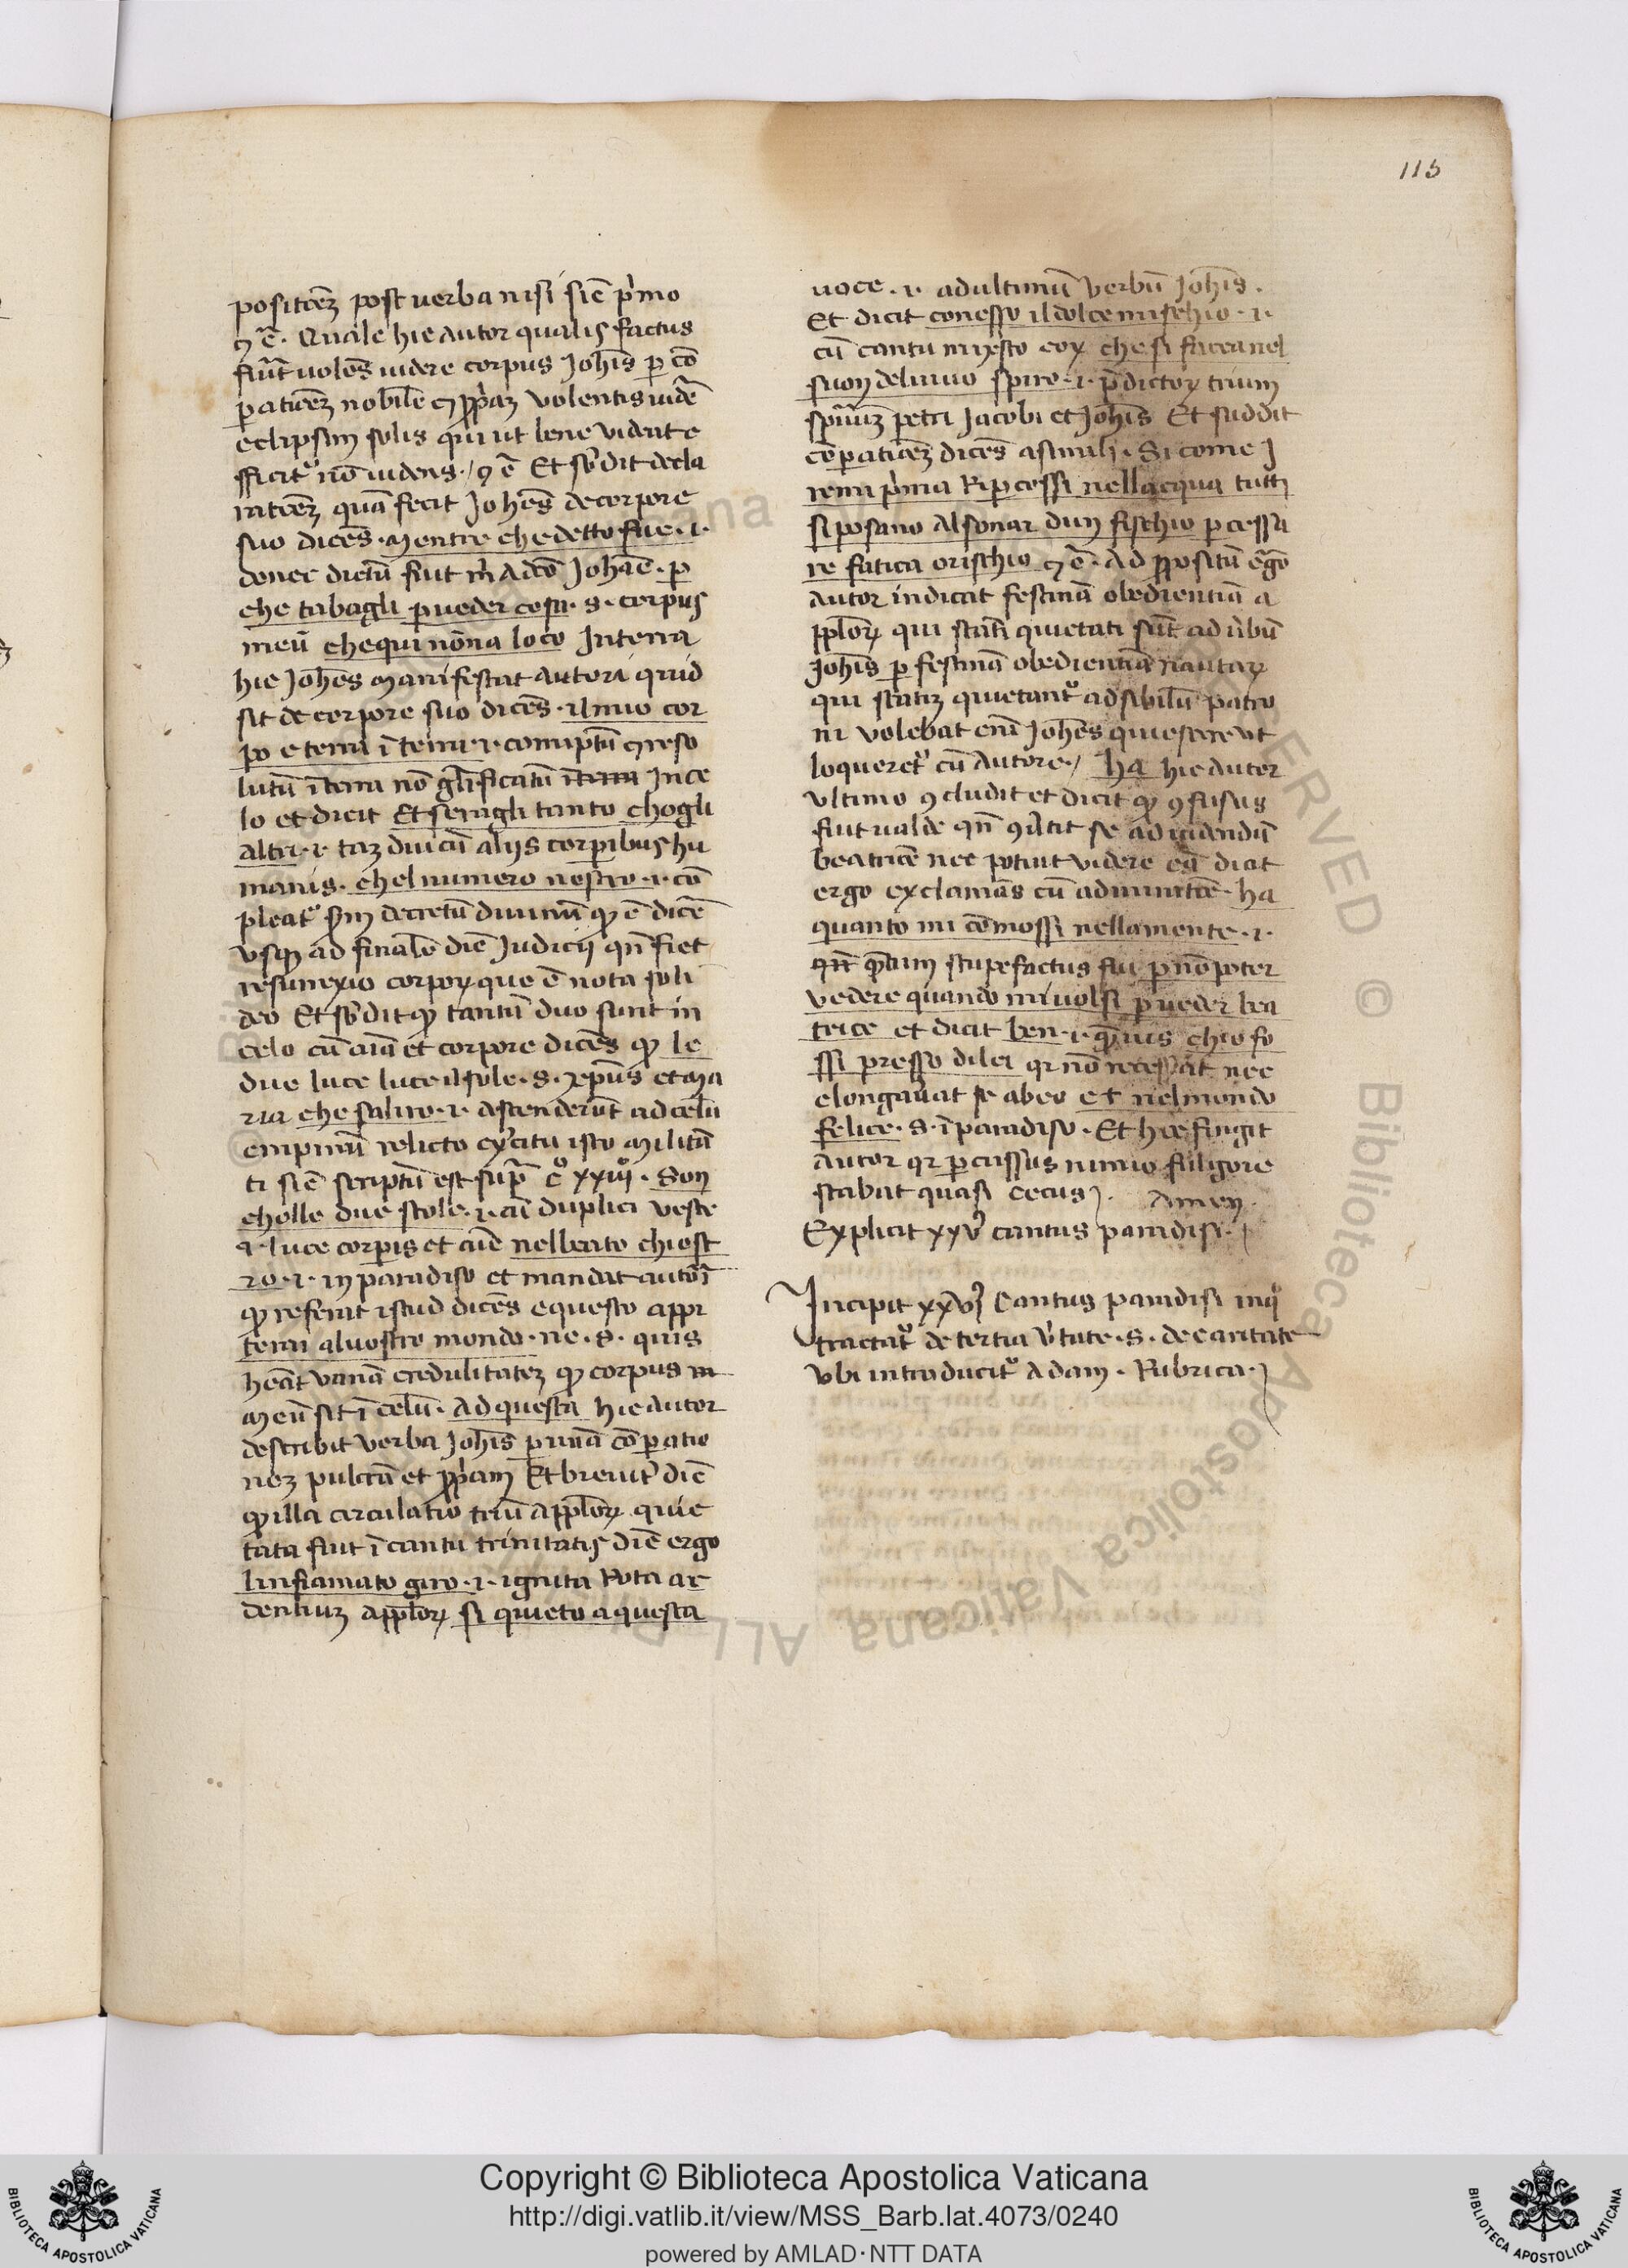 115
positōeꝫ post uerba nisi sic̄ pͥmo
⁊ c̄. Quale hic autor qualis factus
fiūt uolēs uidere corpus Joh̄is ꝑ cō
ꝑatiōeꝫ nobilē ⁊ ꝓpͥaꝫ volentis uidē
eclipsim solis qui ut bene videat e
fficitᵘ nō uidens ⁊ c̄ Et sb̓dit decla
ratōeꝫ quā fecit Joh̄es de corpore
suo dicēs . mentre che detto fue . i .
donec dictū fuit m̄ a dco Johāe . ꝑ
che tabagli ꝑ ueder cosa . s . corpus
meū che qui nōna loco In terra
hic Joh̄es manifestat autori quid
sit de corpore suo dicēs . il mio cor
po e terra ī terra . i . corruptū ⁊ reso
lutū ī terra nō gl̄ificatū ī terra In ce
lo et dicit Et seragli tanto chogli
altri . i . taꝫ diu cū alijs corꝑibus hu
manis . chel numero nostro . i . cō
pleatᵘ sm̄ decretū diuinū ꝙ ē dicē
vsqꝫ ad finalē diē Judicij qn̄ fiet
resurrexio corpoꝝ que ē nota soli
deo Et sb̓dit ꝙ tantū duo sunt in
celo cū aīa et corpore dicēs ꝙ le
due luce luce il sole . s . xp̄us et ma
ria che saliro . i . ascenderūt ad celū
empireū relicto exͨitu isto militā
ti sic̄ scriptū est supͣ cº xxiijº . Son
cholle due stole . i . cū duplici veste
⁊ luce corꝑis et aīe nel beato chiost
ro . i . in paradiso et mandat autorī
ꝙ referat istud dicēs e questo appr
terai al uostro mondo . ne . s . quis
heāt vanā credulitateꝫ ꝙ corpus m
meū sit ī celū . Ad questa hic autor
describit verba Joh̄is ꝑ unā cōꝑatio
neꝫ pulcrā et ꝓpͥam Et breuitͬ dic̄
ꝙ illa circulatio triū appl̄oꝝ quie
tata fuit ī cantu trinitatis dic̄ ergo
linfiamato giro . i . ignita Rota ar
dentiuꝫ appl̄oꝝ si quieto a questa
uoce . i . ad ultimū verbū Joh̄is .
Et dicit con esso il dolce mischio . i .
cū cantu mixsto eoꝝ che si facea nel
suon del triuo spiro . i . p̄dictoꝝ trium
spirituuꝫ petri Jacobi et Joh̄is Et suddit
cōꝑatiōeꝫ dicēs a simili . Si come J
remi pͥma Riꝑcossi nellacqua tutti
si posano al sonar dun fischio ꝑ cessa
re fatica o rischio ⁊ c̄ . Ad ꝓpositū ergo
autor indicat festinā obedientiā a
ppl̄oꝝ qui statī quietati sūt ad ūbū
Joh̄is ꝑ festinā obedientiā nautaꝝ
qui statiꝫ quietantᵘ ad sibilū patro
ni volebat enī Joh̄es quiescere vt
loqueretᵘ cū autore . Ha hic autor
vltimo ꝯcludit et dicit ꝙ ꝯfusus
fuit ualde qn̄ ꝯūtit se ad uidendū
beatricē nec potuit videre eā dicit
ergo exclamās cū admiratōe . ha
quanto mi cōmossi nella mente . i .
qn̄t q̄tum stupefactus fui ꝑ nō poter
vedere quando mi volsi ꝑ ueder bea
trice et dicit ben . i . q̄uis chio fo
ssi presso di lei qr nō recesserat nec
elongauat se ab eo et nel mondo
felice . s . ī paradiso . Et hec fingit
autor qr ꝑcussus nimio fulgore
stabat quasi cecus . Amen .
Explicit xxvͦ cantus paradisi .
Incipit xxvjͦ Cantus paradisi in qͦ
tractatᵘ de tertia v̄tute . s . de caritate
vbi introducitᵘ Adam . Rubrica .
Copyright © Biblioteca Apostolica Vaticana
http://digi.vatlib.it/view/MSS_Barb.lat.4073/0240
powered by AMLAD·NTT DATA
BIBLIOTECA APOSTOLICA VATICANA
BIBLIOTECA APOSTOLICA VATICANA